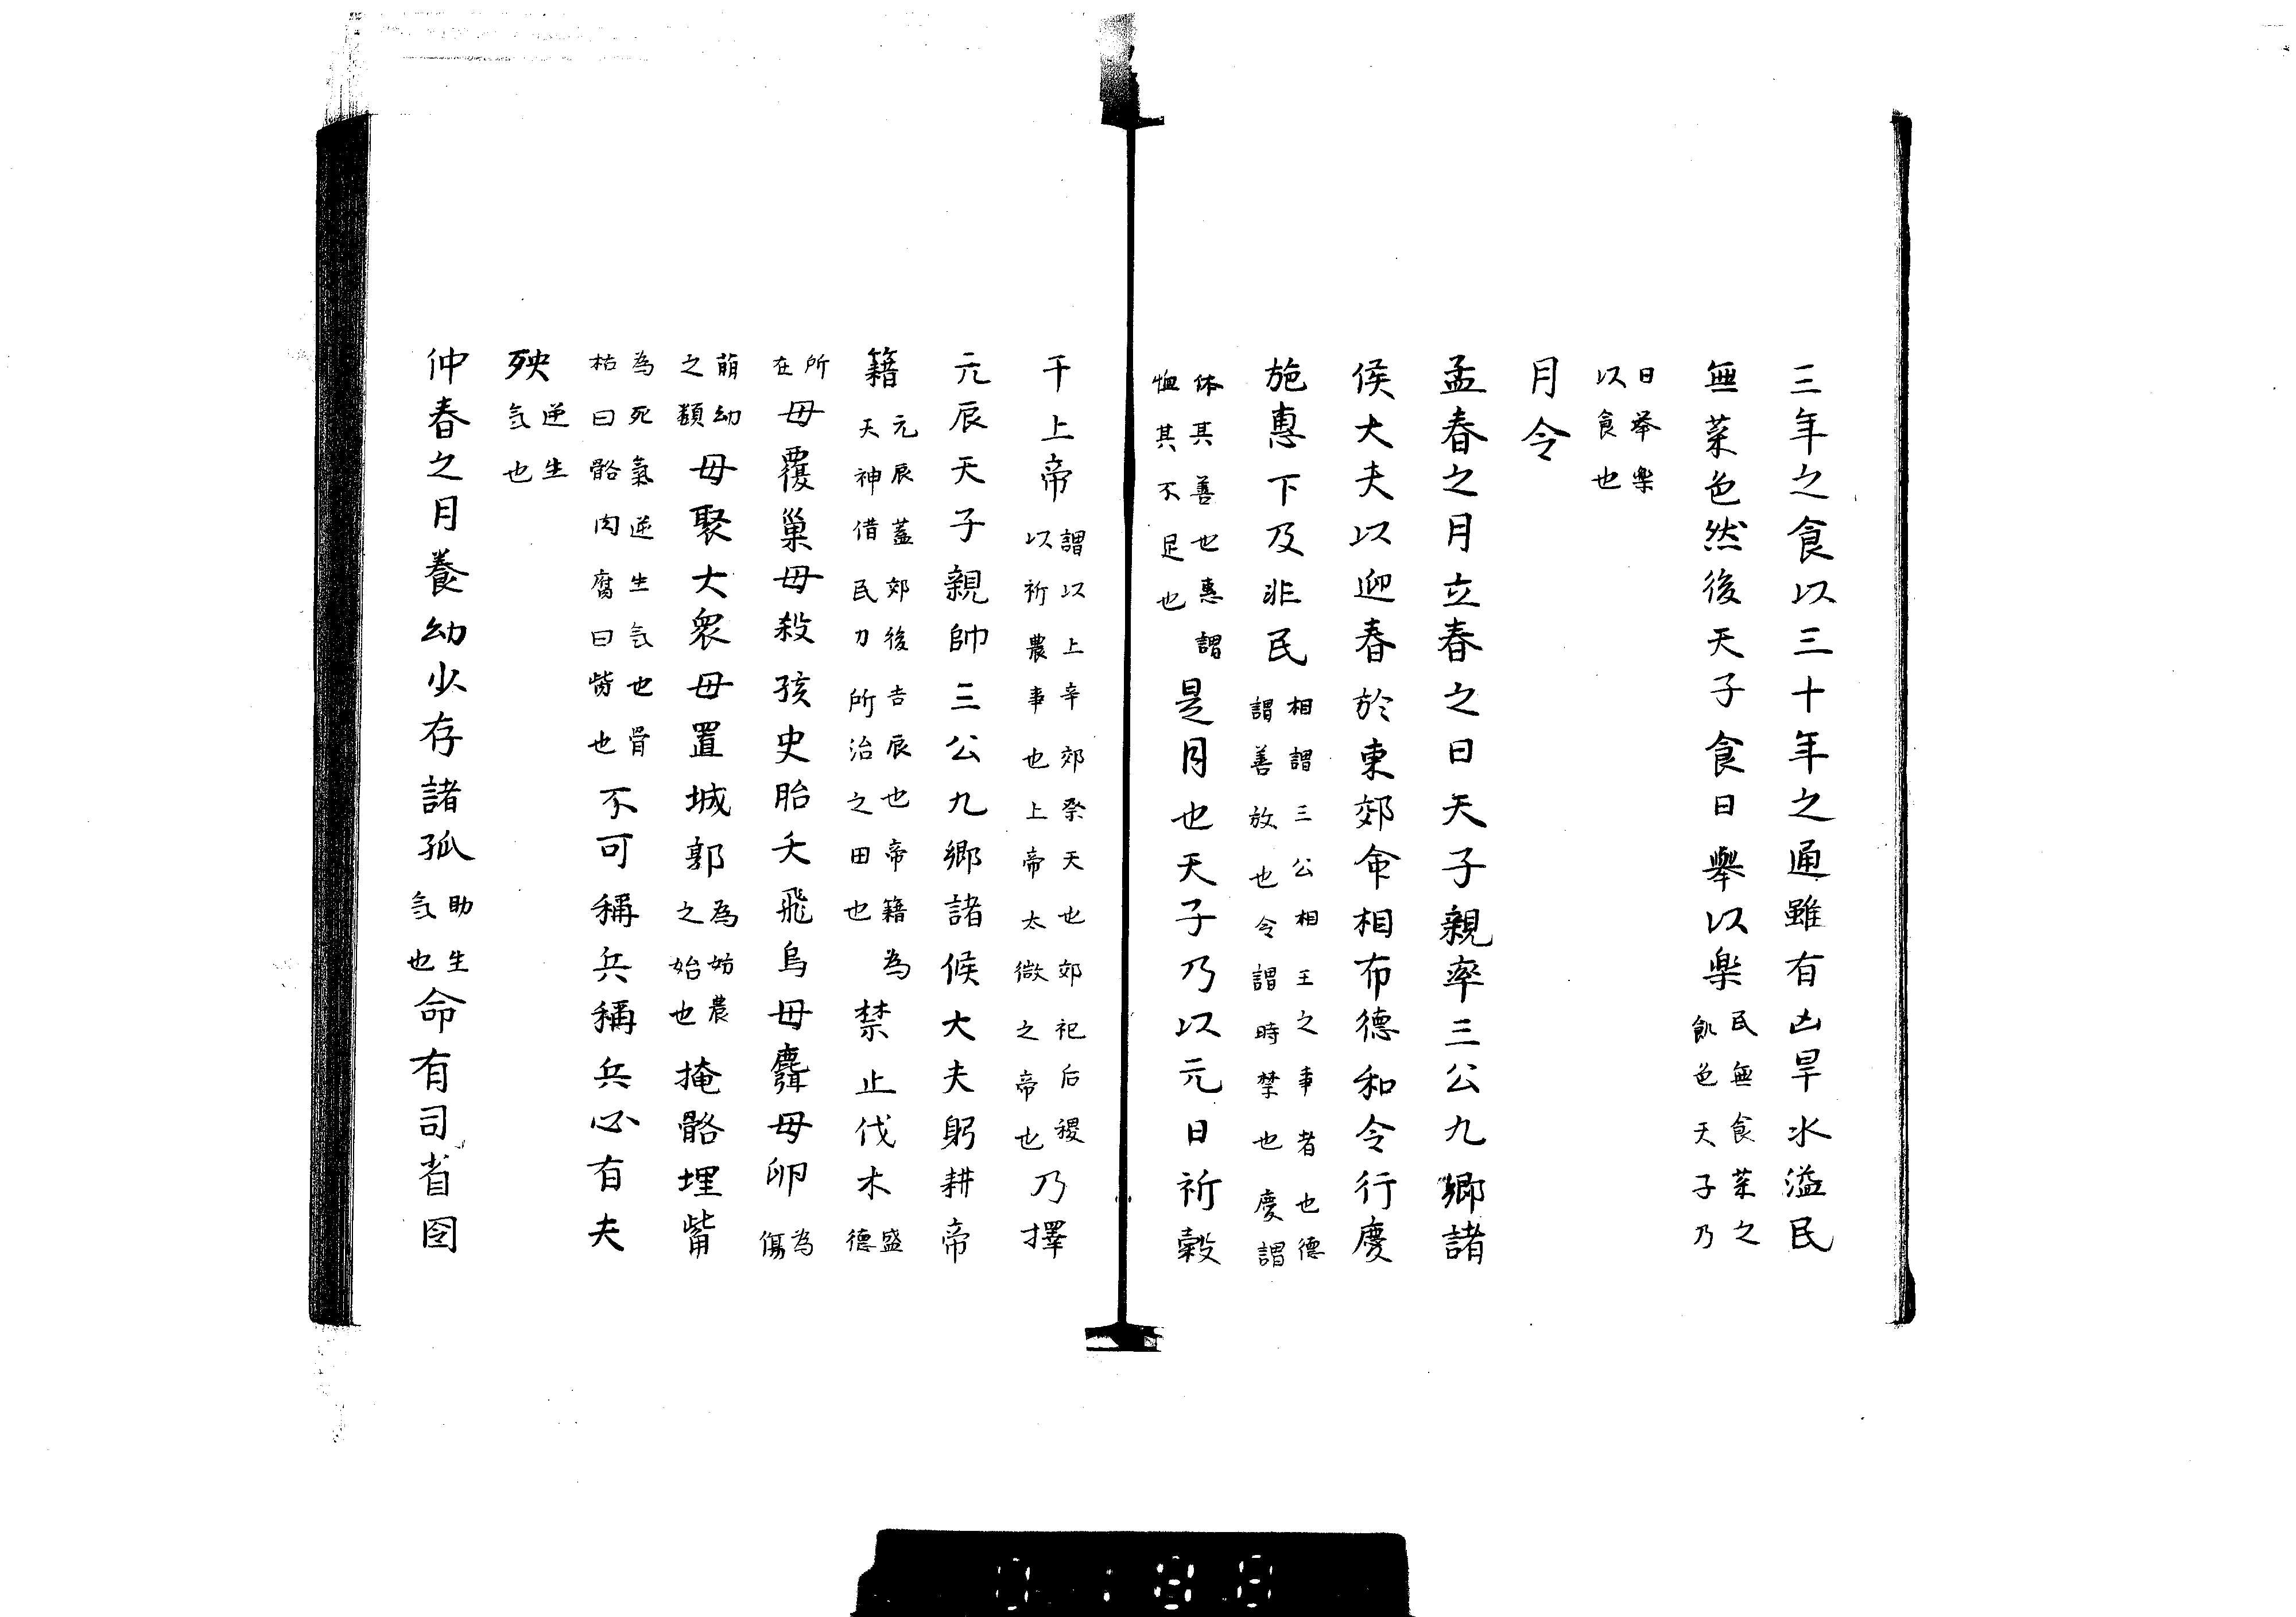 三年之食以三十年之通雖有凶旱水溢民
無菜色然後天子食日舉以樂民無食菜之飢色天子乃
日举樂以食也
月令
孟春之月立春之日天子親率三公九鄉諸
侯大夫以迎春於東郊命相布德和令行慶
施惠下及非民相謂三公相王之事者也德謂善放也令謂時禁也慶謂
休其善也惠謂恤其不足也是月也天子乃以元日祈穀
于上帝謂以上辛郊祭天也郊祀后稷以祈農事也上帝太微之帝也乃擇
元辰天子親帥三公九鄉諸候大夫躬耕帝
籍元辰蓋郊後吉辰也帝籍為天神借民力所治之田也禁止伐木盛德
所在毋覆巢毋殺孩史胎夭飛鳥毋麛毋卵為傷
萠幼之類毋聚大衆毋置城郭為妨農之始也掩骼埋胔
為死氣逆生气也骨枯曰骼肉腐曰胔也不可稱兵稱兵必有夫
殃逆生气也
仲春之月養幼少存諸孤助生气也命有司省囹